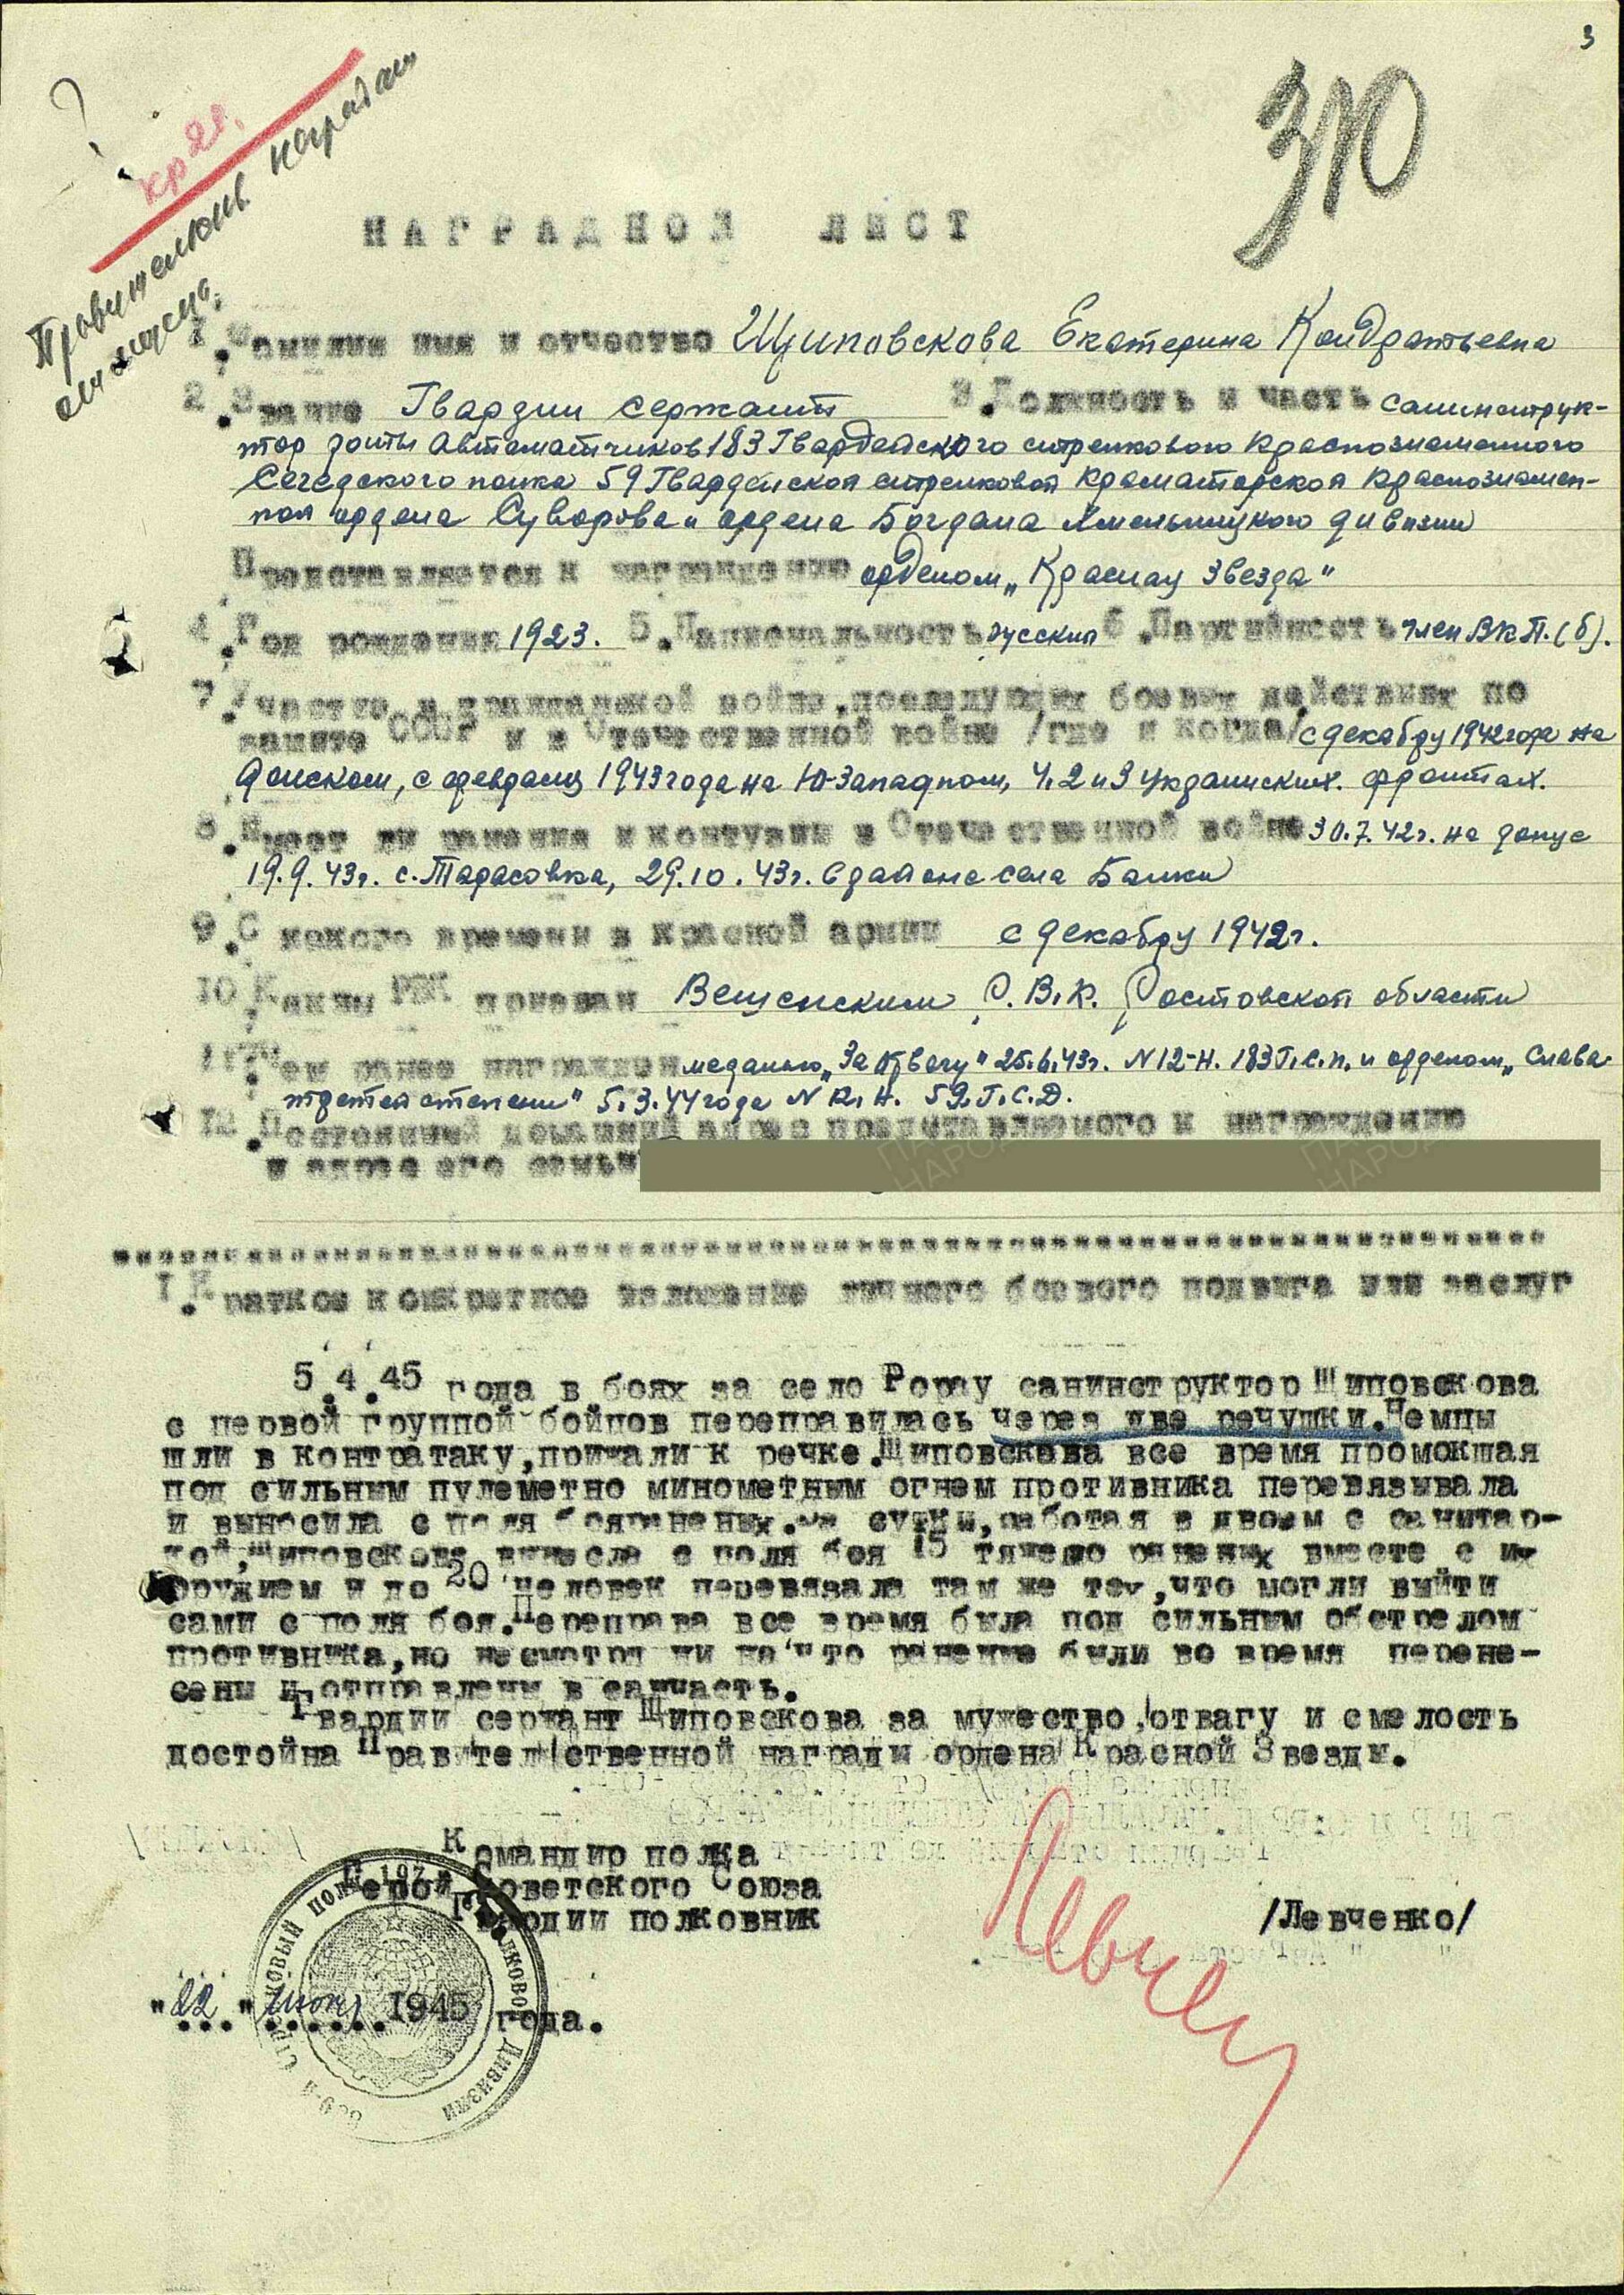 3
310
кр 22.
НАГРАДНОЙ ЛИСТ
1. Фамилия имя и отчество Щиповскова Екатерина Кондратьевна
2. Звание Гвардии сержант 3. Должность и часть санинструк-
тор роты Автоматчиков 183 Гвардейского стрелкового Краснознаменного
Сегедского полка 59 Гвардейской стрелковой Краматорской Краснознамен-
ной ордена Суворова и ордена Богдана Хмельницкого дивизии
Представляется к награждению орденом „Красная Звезда"
4. Год рождения 1923. 5. Национальность русский 6. Партийность член ВКП.(б).
7. Участие в гражданской войне, последующих боевых действиях по
защите СССР и в Отечественной войне /где и когда/ с декабря 1942 года на
Донском, с февраля 1943 года на Ю-Западном, 4, 2 и 3 Украинских фронтах.
8. Имеет ли ранения и контузии в Отечественной войне 30.7.42г. на
19.9.43г. с. Тарасовка, 29.10.43г. в районе села Балки
9. С какого времени в Красной армии с декабря 1942г.
10. Каким РВК призван Вешенским Р.В.К. Ростовской области
11. Чем ранее награжден медалью „За отвагу" 25.6.43г. N 12-Н. 183 Г.С.П. и орденом „Слава
третей степени" 5.3.44 года 59.Г.С.Д.
12. Постоянный домашний адрес представляемого к награждению
и адрес его семьи
1. Краткое конкретное изложение личного боевого подвига или заслуг
5.4.45 года в боях за село Рорау санинструктор Щиповскова
с первой группой бойцов переправилась через две речушки. Немцы
шли в контратаку, прижали к речке. Щиповскова все время промокшая
под сильным пулеметно минометным огнем противника перевязывала
и выносила с поля боя раненых. За сутки, работая в двоем с санитар-
кой, Щиповскова вынесла с поля боя 15 тяжело раненых вместе с их
оружием и до 20 человек перевязала там же тех, что могли выйти
сами с поля боя. Переправа все время была под сильным обстрелом
противника, но несмотря ни на что раненые были во время перене-
сены и отправлены в санчасть.
Гвардии сержант Щиповскова за мужество, отвагу и смелость
достойна Правительственной награды ордена Красной Звезды.
Командир полка
Герой Советского Союза
Гвардии полковник /Левченко/
"22" июня 1945 года.